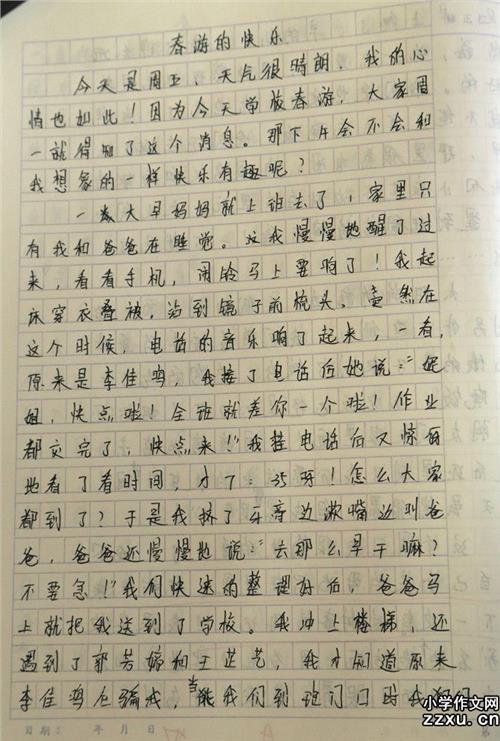 春游的快乐
今天是周五，天气很晴朗，我的心
情也如此！因为今天学校春游，大家周
一就得知了这个消息。那下午会不会和
我想象的一样快乐有趣呢？
一大早妈妈就上班去了，家里只
有我和爸爸在睡觉。我慢慢地醒了过
来，看看手机，闹铃马上要响了！我起
床穿衣叠被，站到镜子前梳头。竟然在
这个时候，电话的音乐响了起来，一看，
原来是李佳鸣，我接了电话后她说："妮
姐，快点啦！全班就差你一个啦！作业
都交完了，快点来！"我挂电话后又惊讶
地看了看时间，才7：35呀！怎么大家
都到了？于是我挤了牙膏边漱嘴边叫爸
爸，爸爸还慢慢地说："去那么早干嘛？
不要急！"我们快速的整理好后，爸爸马
上就把我送到了学校。我冲上楼梯，还
遇到了郭芳婷和王芷艺，我才知道原来
李佳鸣在骗我，当我们到班门口时我
日期： 年 月 日
小学作文网
zzxu.cn